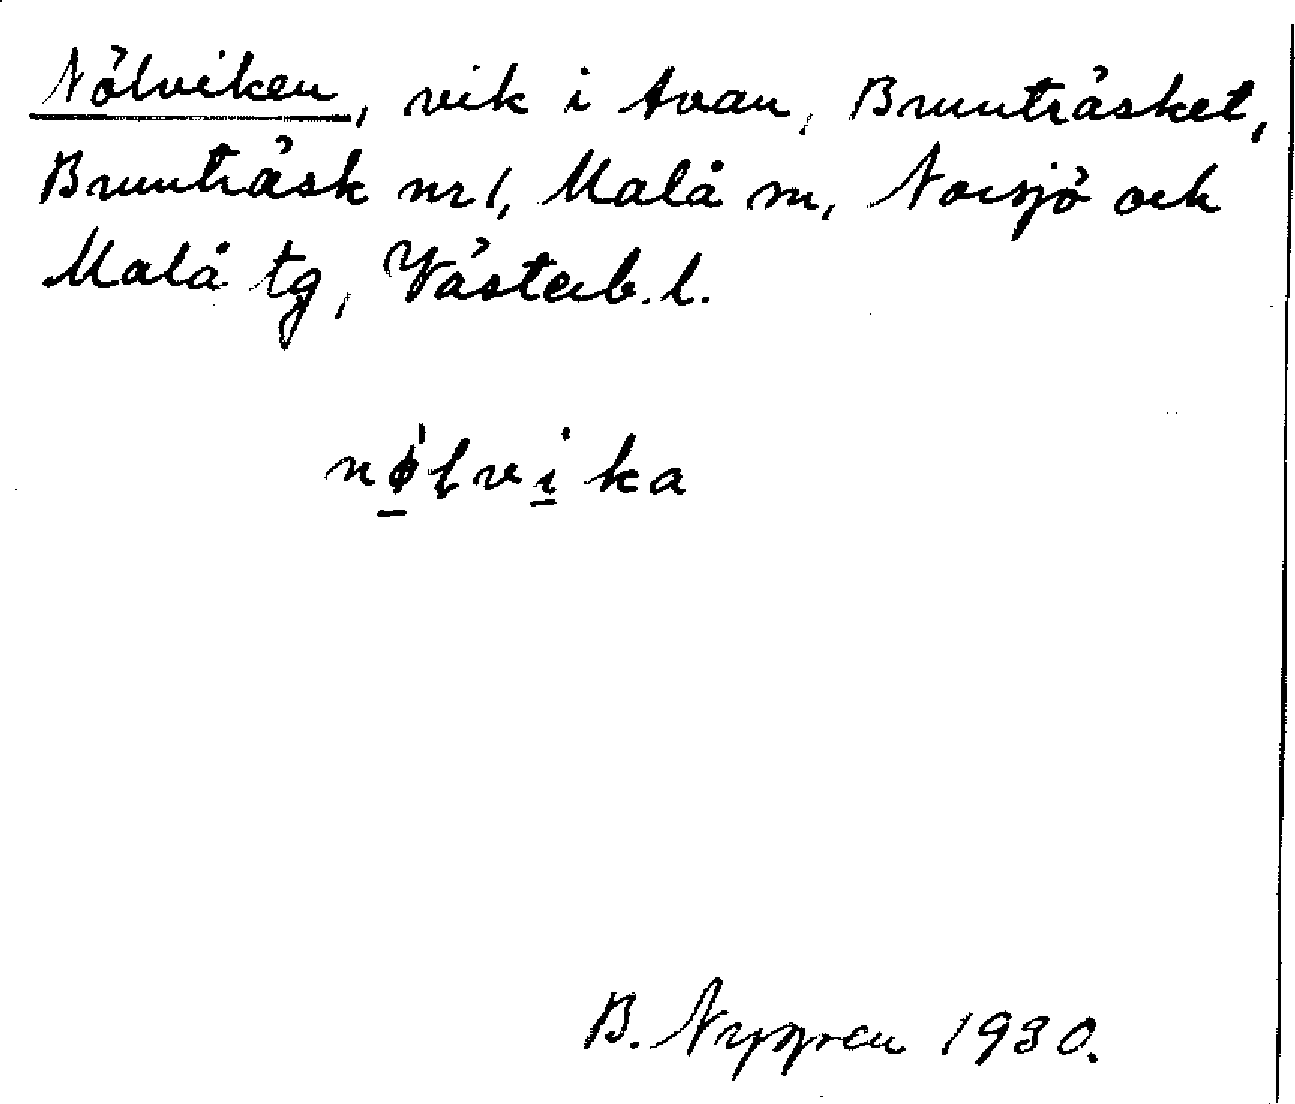 Nölviken, vik i Avan, Brunträsket,
Brunträsk nr 1, Malå sn, Norsjö och
Malå tg, Västerb. l.
nø̱̍ɭvi̱ka
B. Nygren 1930.